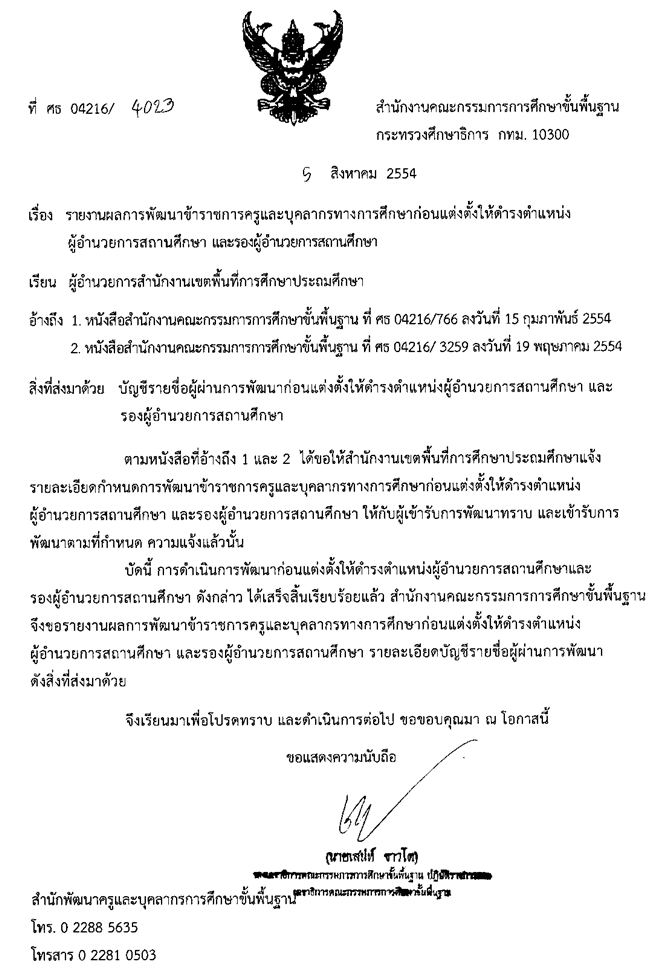 ที่ ศธ 04216/ 4023
สำนักงานคณะกรรมการการศึกษาขั้นพื้นฐาน
กระทรวงศึกษาธิการ กทม. 10300
5 สิงหาคม 2554
เรื่อง รายงานผลการพัฒนาข้าราชการครูและบุคลากรทางการศึกษาก่อนแต่งตั้งให้ดำรงตำแหน่ง
ผู้อำนวยการสถานศึกษา และรองผู้อำนวยการสถานศึกษา
เรียน ผู้อำนวยการสำนักงานเขตพื้นที่การศึกษาประถมศึกษา
อ้างถึง 1. หนังสือสำนักงานคณะกรรมการการศึกษาขั้นพื้นฐาน ที่ ศธ 04216/766 ลงวันที่ 15 กุมภาพันธ์ 2554
2. หนังสือสำนักงานคณะกรรมการการศึกษาขั้นพื้นฐาน ที่ ศธ 04216/ 3259 ลงวันที่ 19 พฤษภาคม 2554
สิ่งที่ส่งมาด้วย บัญชีรายชื่อผู้ผ่านการพัฒนาก่อนแต่งตั้งให้ดำรงตำแหน่งผู้อำนวยการสถานศึกษา และ
รองผู้อำนวยการสถานศึกษา
ตามหนังสือที่อ้างถึง 1 และ 2 ได้ขอให้สำนักงานเขตพื้นที่การศึกษาประถมศึกษาแจ้ง
รายละเอียดกำหนดการพัฒนาข้าราชการครูและบุคลากรทางการศึกษาก่อนแต่งตั้งให้ดำรงตำแหน่ง
ผู้อำนวยการสถานศึกษา และรองผู้อำนวยการสถานศึกษา ให้กับผู้เข้ารับการพัฒนาทราบ และเข้ารับการ
พัฒนาตามที่กำหนด ความแจ้งแล้วนั้น
บัดนี้ การดำเนินการพัฒนาก่อนแต่งตั้งให้ดำรงตำแหน่งผู้อำนวยการสถานศึกษาและ
รองผู้อำนวยการสถานศึกษา ดังกล่าว ได้เสร็จสิ้นเรียบร้อยแล้ว สำนักงานคณะกรรมการการศึกษาขั้นพื้นฐาน
จึงขอรายงานผลการพัฒนาข้าราชการครูและบุคลากรทางการศึกษาก่อนแต่งตั้งให้ดำรงตำแหน่ง
ผู้อำนวยการสถานศึกษา และรองผู้อำนวยการสถานศึกษา รายละเอียดบัญชีรายชื่อผู้ผ่านการพัฒนา
ดังสิ่งที่ส่งมาด้วย
จึงเรียนมาเพื่อโปรดทราบ และดำเนินการต่อไป ขอขอบคุณมา ณ โอกาสนี้
ขอแสดงความนับถือ
(นายเสน่ห์ ขาวโต)
รองเลขาธิการคณะกรรมการการศึกษาขั้นพื้นฐาน ปฏิบัติราชการแทน
เลขาธิการคณะกรรมการการศึกษาขั้นพื้นฐาน
สำนักพัฒนาครูและบุคลากรการศึกษาขั้นพื้นฐาน
โทร. 0 2288 5635
โทรสาร 0 2281 0503